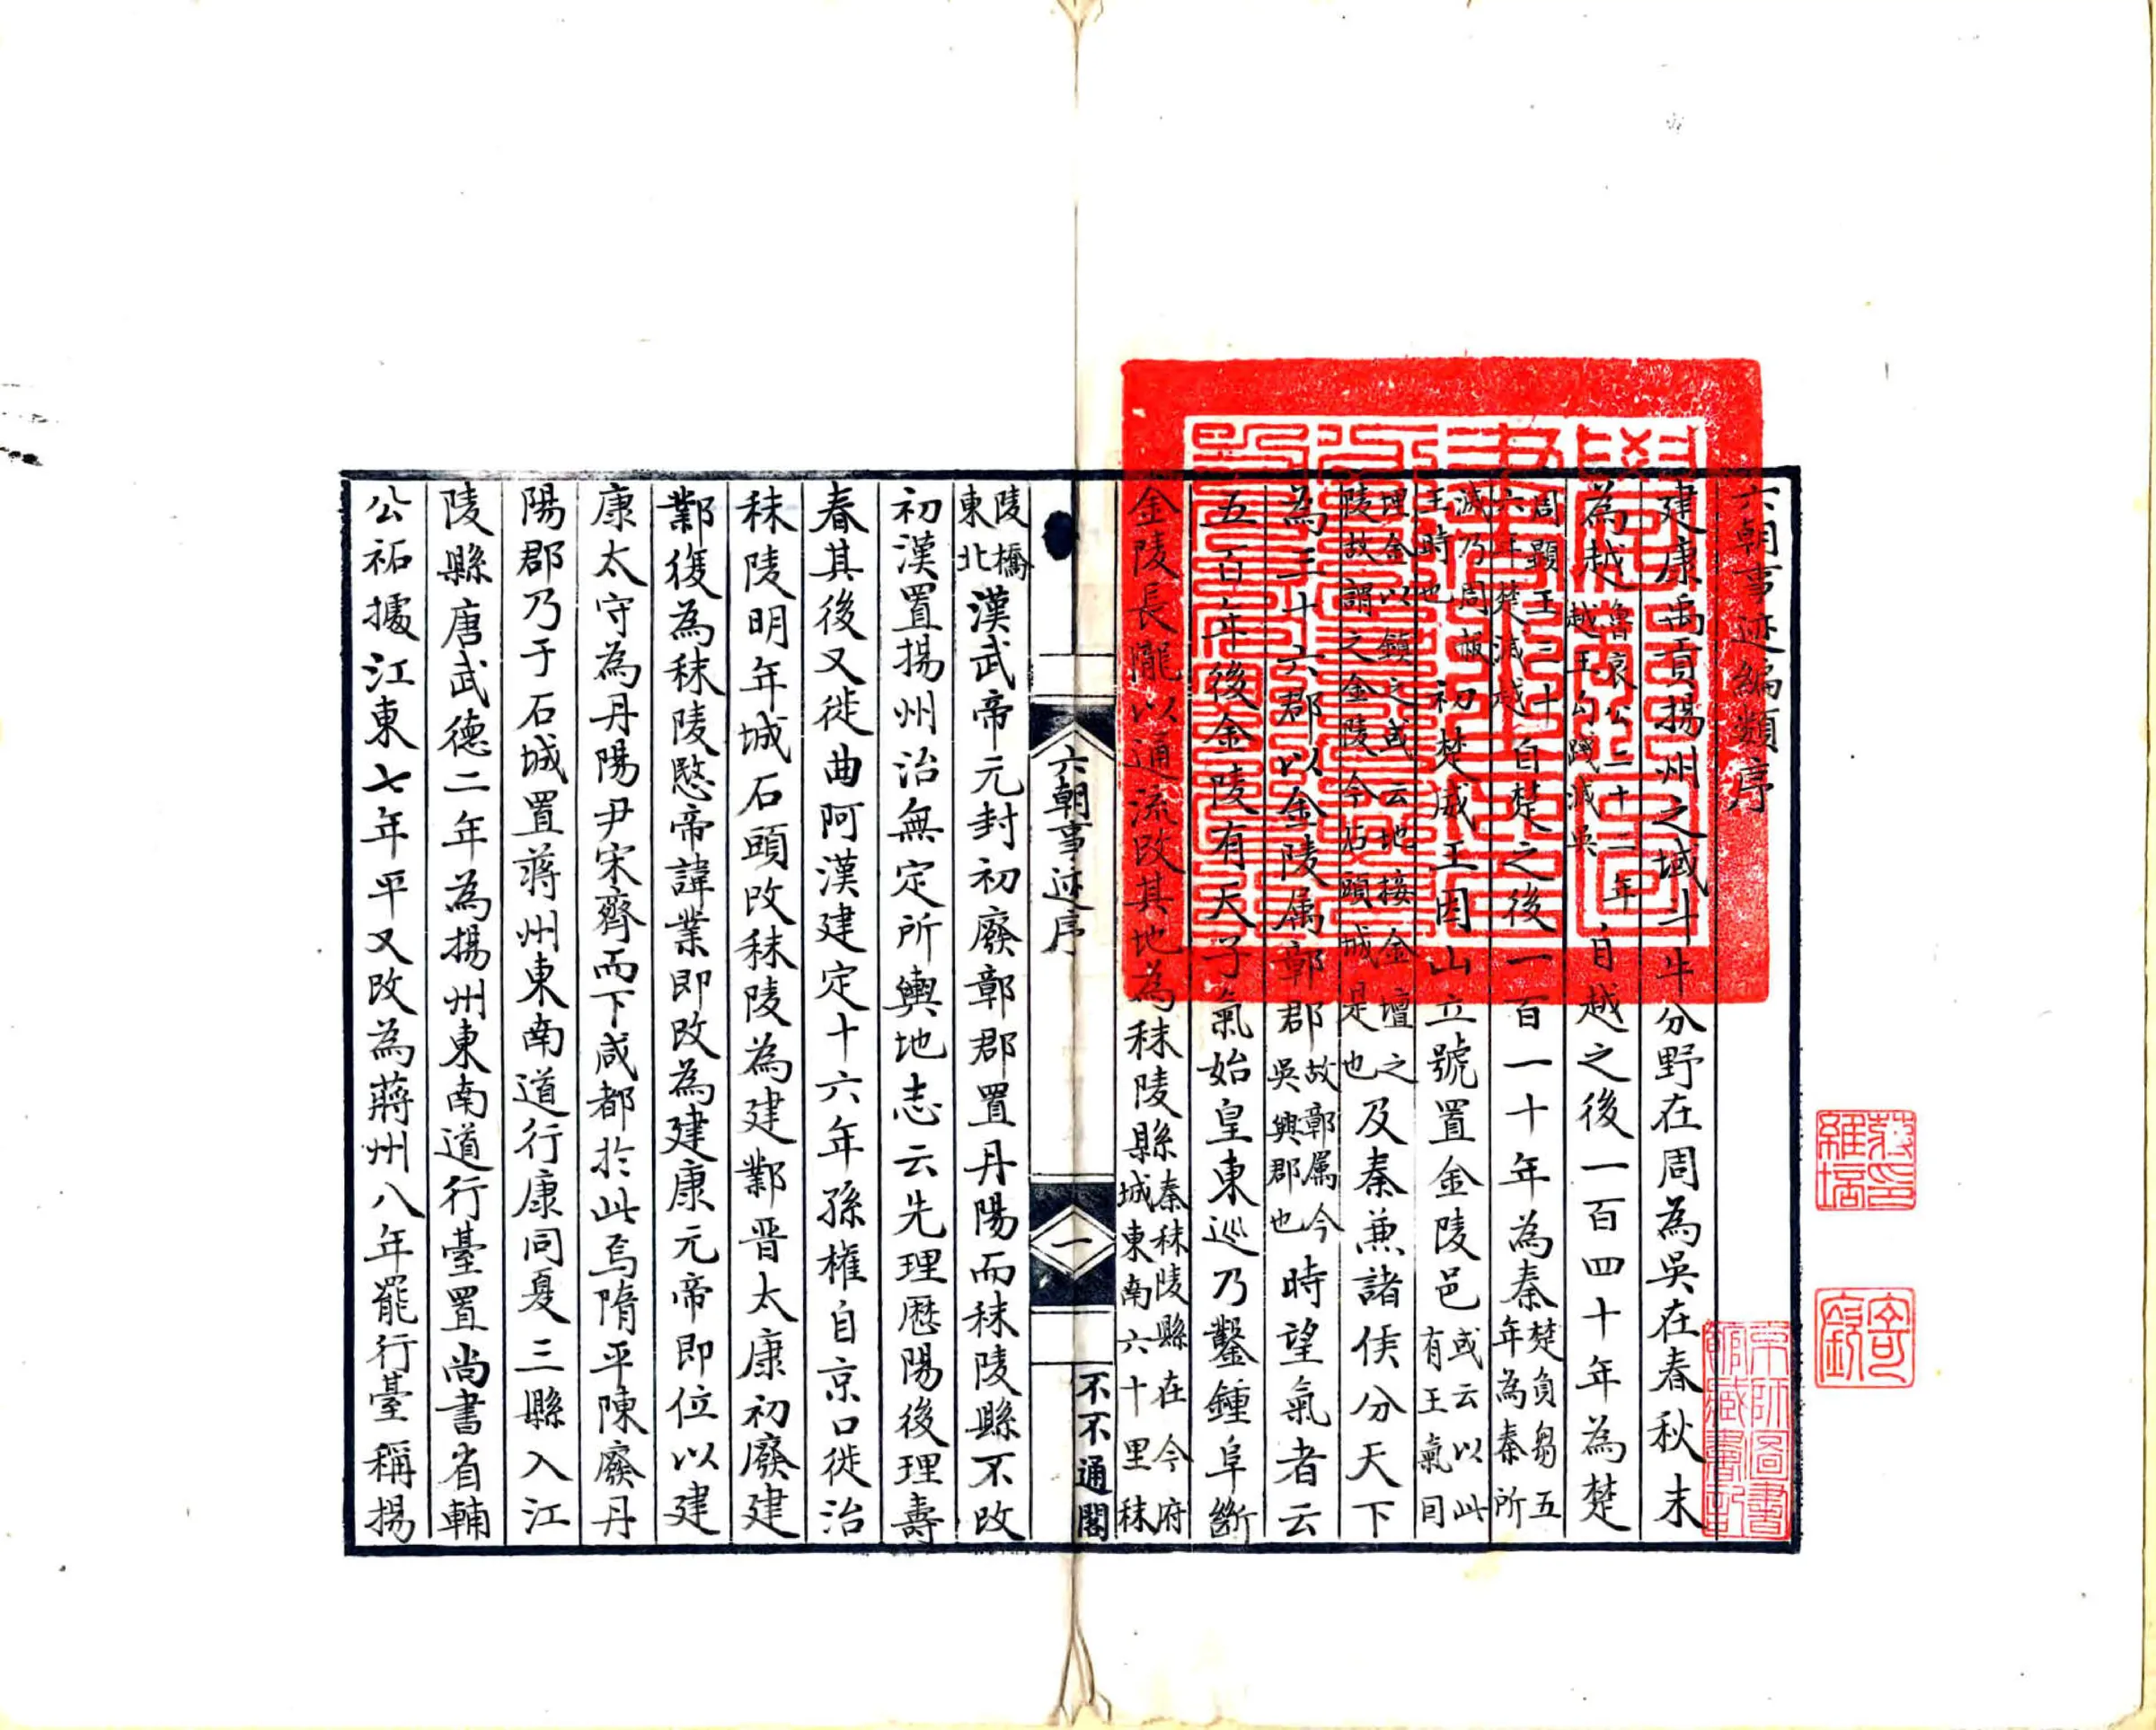 六朝事迹編類序
建康禹貢揚州之域斗牛分野在周為吳在春秋末
為越魯哀公二十二年越王勾踐滅吳自越之後一百四十年為楚
周顯王三十六年楚滅越自楚之後一百一十年為秦楚負芻五年為秦所
滅乃周赧王時也初楚威王因山立號置金陵邑或云以此有王氣因
埋金以鎮之或云地接金壇之陵故謂之金陵今石頭城是也及秦兼諸侯分天下
為三十六郡以金陵属鄣郡故鄣属今吳興郡也時望氣者云
五百年後金陵有天子氣始皇東巡乃鑿鍾阜斷
金陵長隴以通流改其地為秣陵縣秦秣陵縣在今府城東南六十里秣
六朝事迹序
一
不不通閣
陵橋東北漢武帝元封初廢鄣郡置丹陽而秣陵縣不改
初漢置揚州治無定所輿地志云先理歷陽後理壽
春其後又徙曲阿漢建定十六年孫權自京口徙治
秣陵明年城石頭改秣陵為建鄴晋太康初廢建
鄴復為秣陵愍帝諱業即改為建康元帝即位以建
康太守為丹陽尹宋齊而下咸都於此焉隋平陳廢丹
陽郡乃于石城置蔣州東南道行康同夏三縣入江
陵縣唐武德二年為揚州東南道行臺置尚書省輔
公祏據江東七年平又改為蔣州八年罷行臺稱揚
京師圖書館藏書記